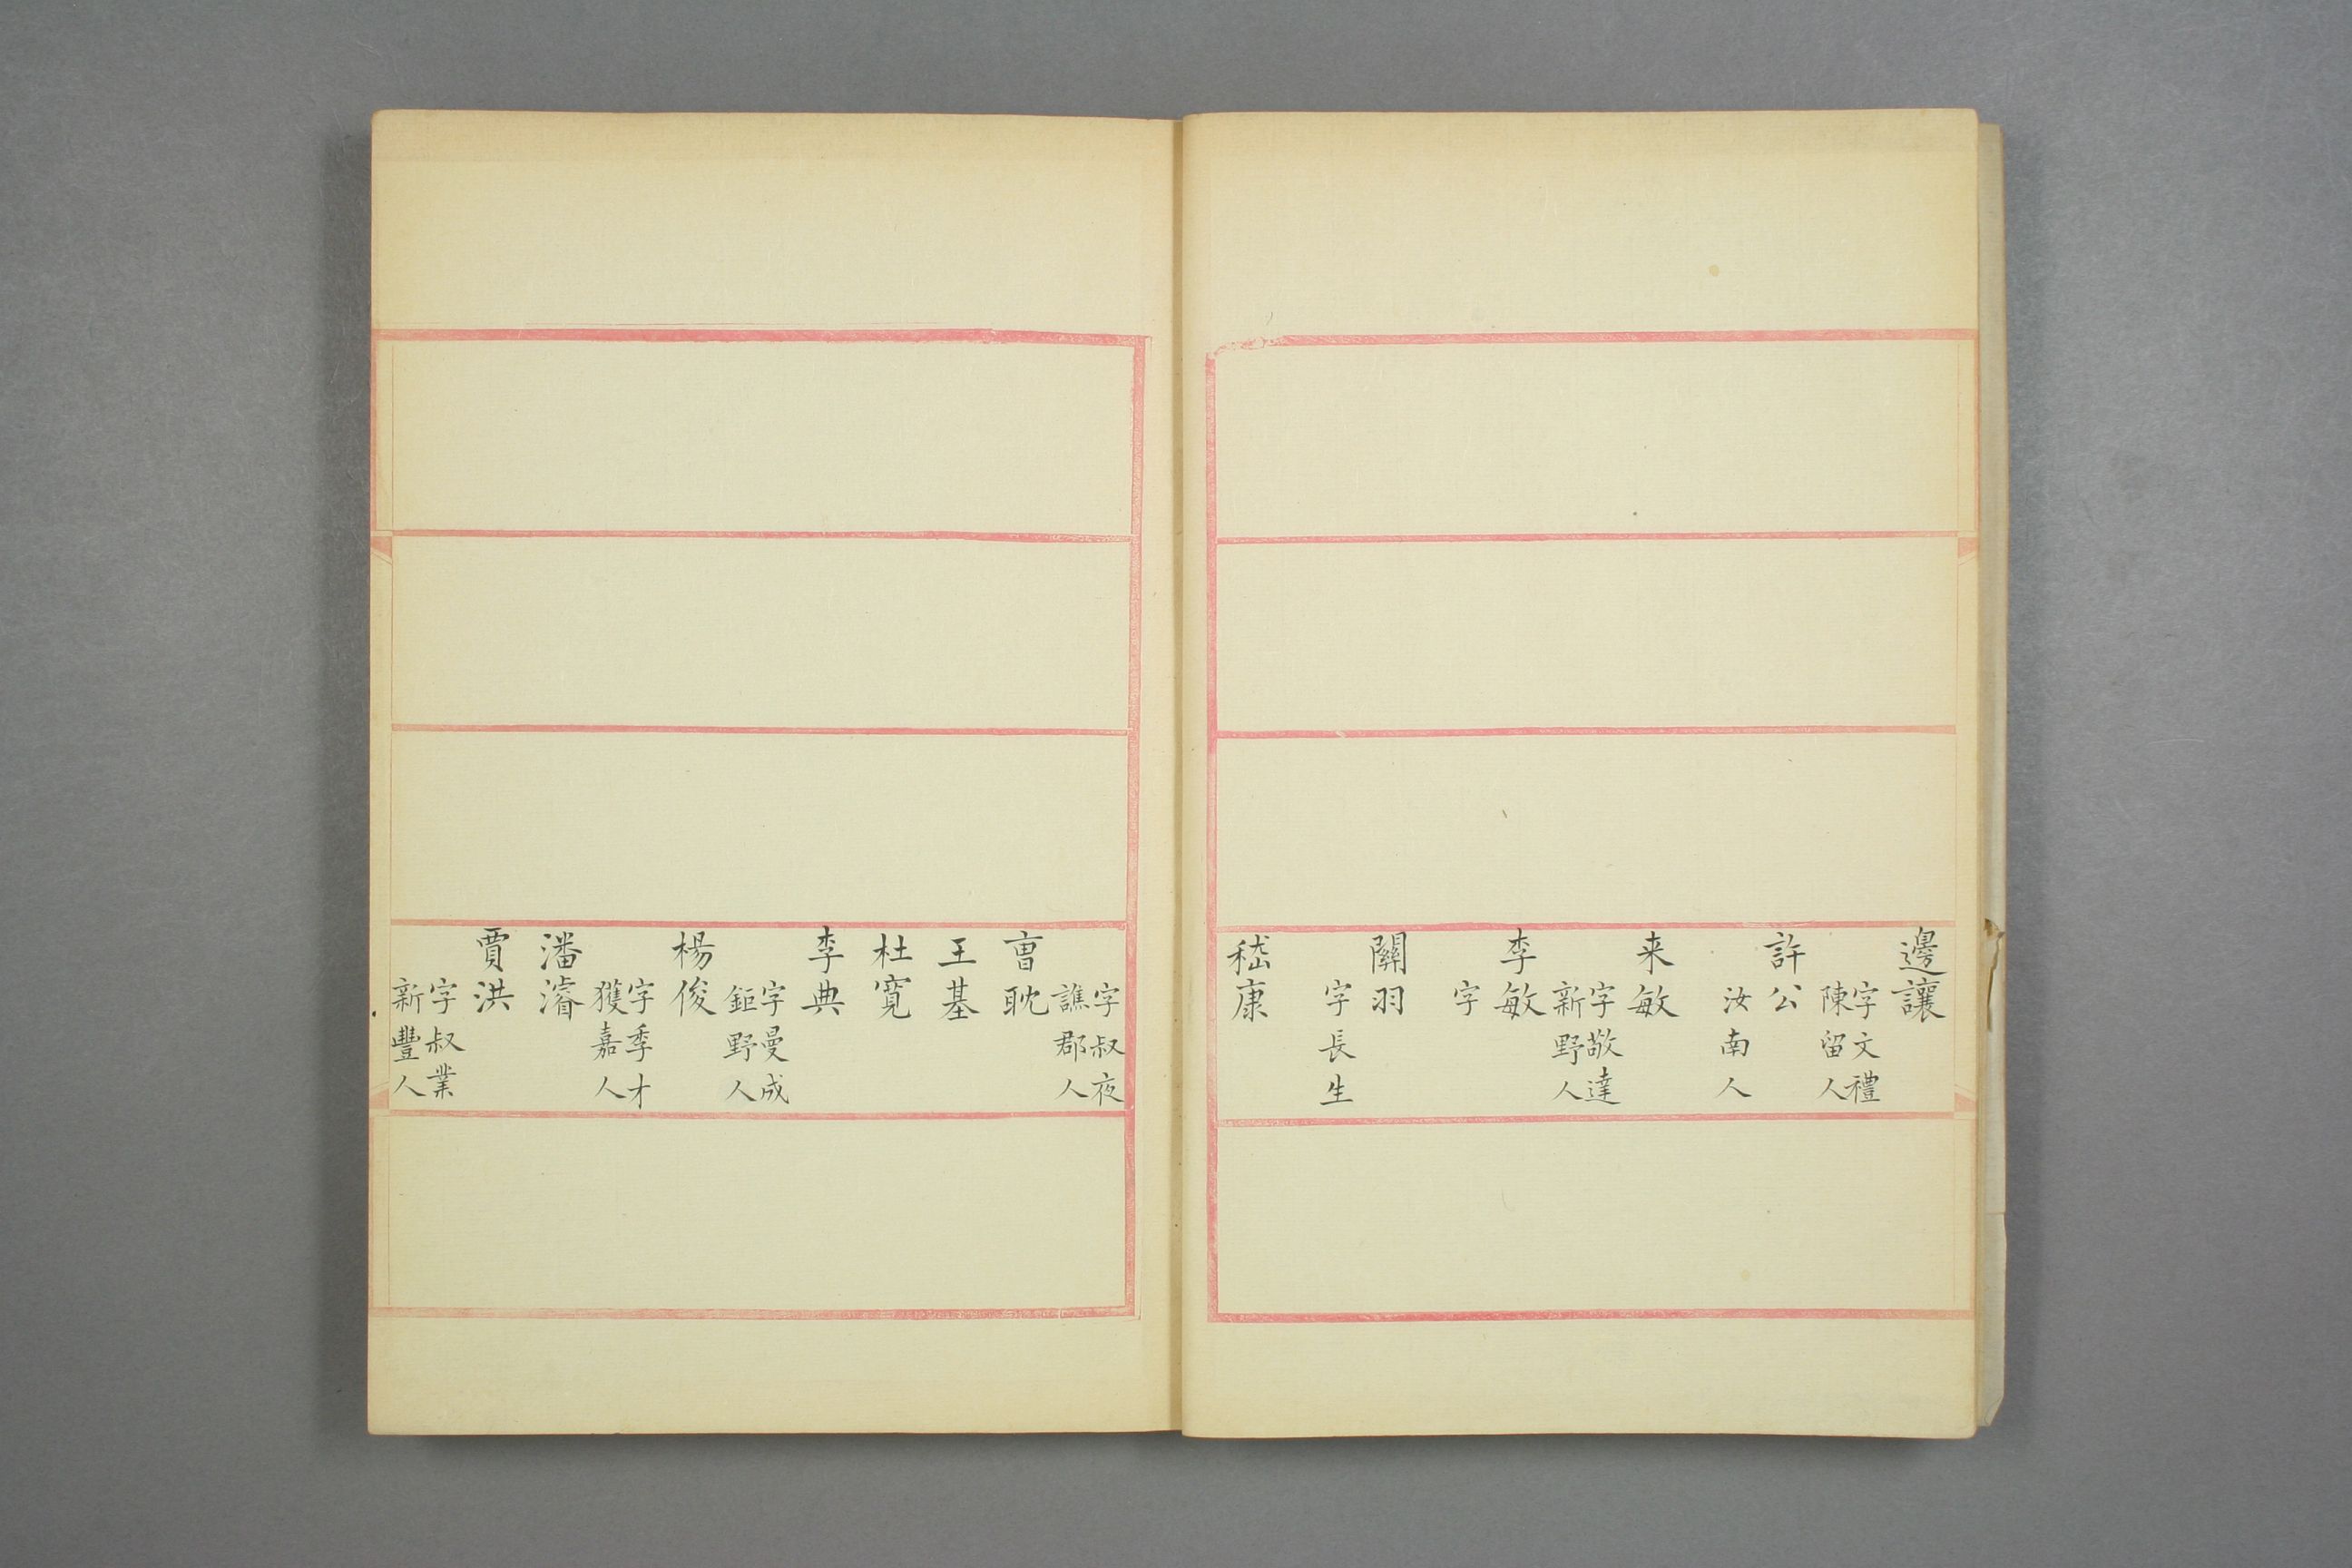 邊讓
字文禮
陳留人
許公
汝南人
来敏
字敬達
新野人
李敏
字
關羽
字長生
嵇康
字叔夜
譙郡人
曺耽
王基
杜寬
李典
字曼成
鉅野人
楊俊
字季才
獲嘉人
潘濬
賈洪
字叔業
新豐人